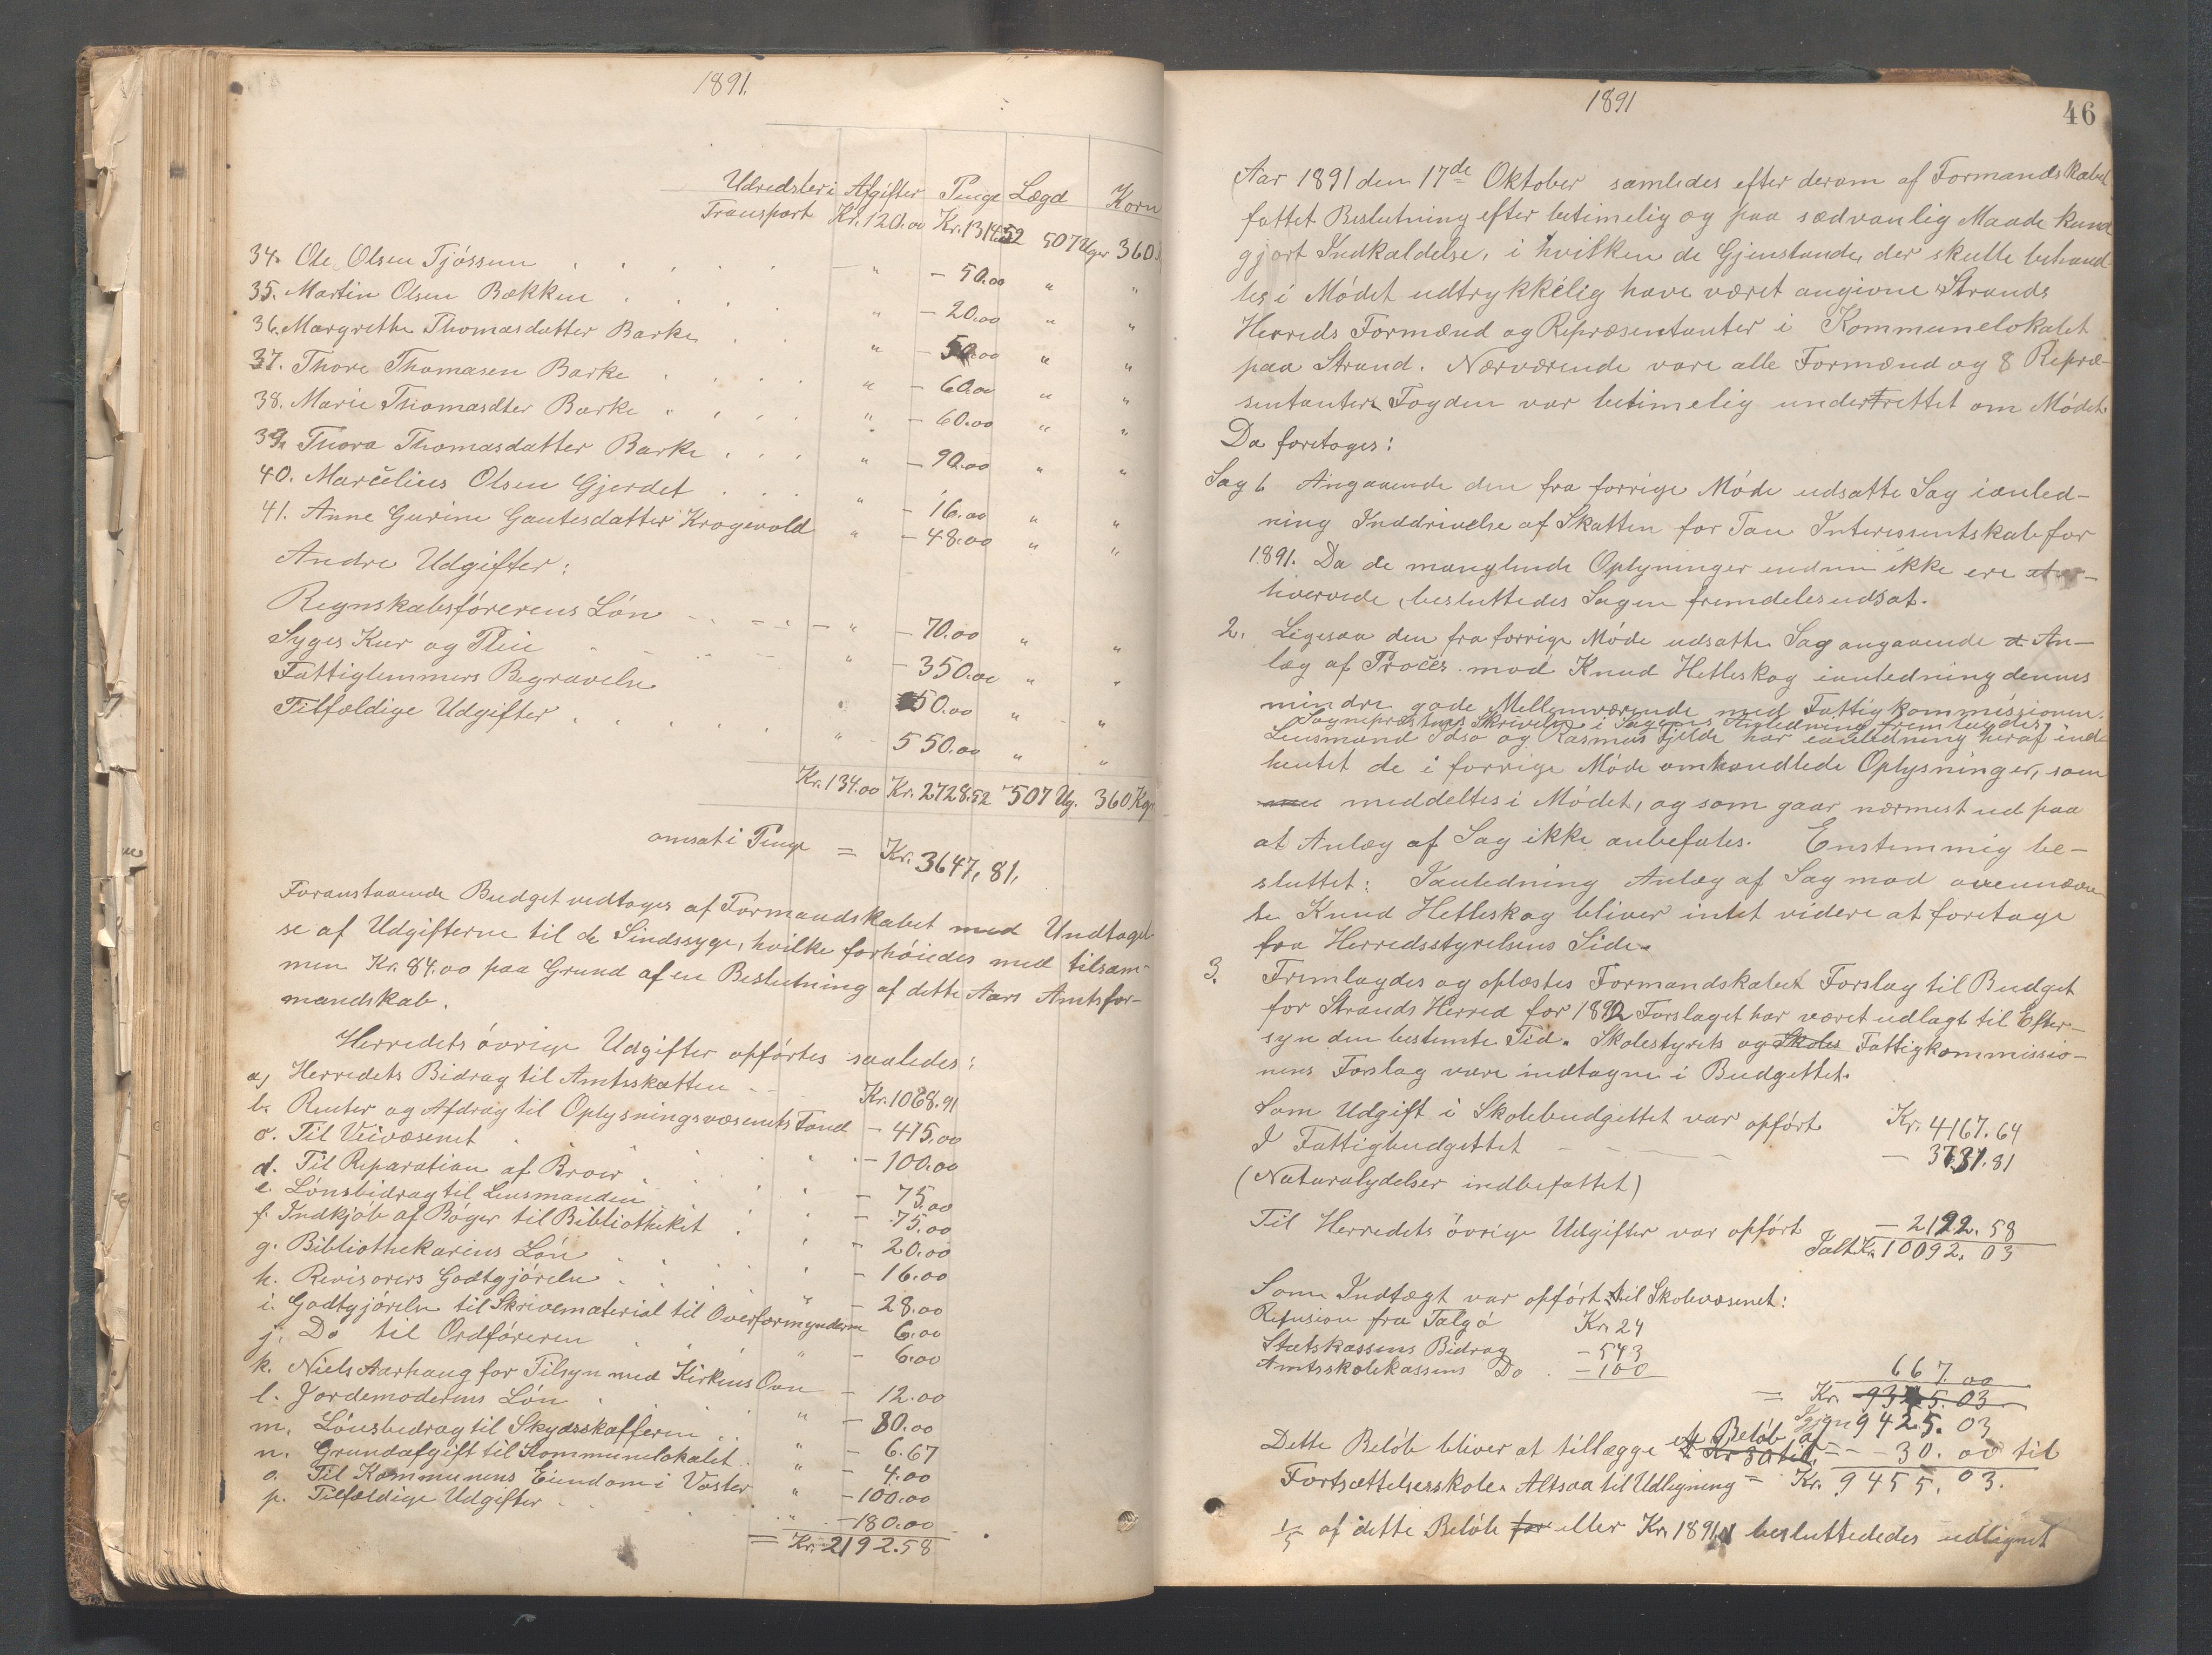 1891.
Udredster i Afgifter Penge Lægd Korn
Transport Kr. 120.00 Kr. 1314.52 507 Uger 360
34. Ole Olsen Tjøssem . . . . . — " — 50.00 " "
35. Martin Olsen Bækken . . . " — 20.00 " "
36. Margrethe Thomasdatter Barke . . " — 50.00 " "
37. Thore Thomasen Barke . . . . " — 60.00 " "
38. Marie Thomasdter Barke . . . . " — 60.00 " "
39. Thora Thomasdatter Barke . . . " — 90.00 " "
40. Marcelius Olsen Gjerdet . . . " — 16.00 " "
41. Anne Gurine Gautesdatter Krogevold " — 48.00 " "
Andre Udgifter:
Regnskabsførerens Løn - - - - — " — 70.00 " "
Syges Kur og Pleie " — 350.00 " "
Fattiglemmers Begravelse " 50.00 " "
Tilfældige Udgifter . . . . . " 550.00 " "
Kr. 134.00 Kr. 2728.52 507 Ug. 360 Kgr
omsat i Penge = Kr. 3647,81,
Foranstaaende Budget vedtoges af Formandskabet med Undtagel-
se af Udgifterne til de Sindssyge, hvilke forhøiedes med tilsam-
men Kr. 84.00 paa Grund af en Beslutning af dette Aars Amtsfor-
mandskab.
Herredets øvrige Udgifter opførtes saaledes:
a) Herredets Bidrag til Amtsskatten - - Kr. 1068.91
b. Renter og Afdrag til Oplysningsvæsenets Fond — 415.00
c. Til Veivæsenet . . . . . — 100.00
d. Til Reparation af Broer . . . . — 75.00
e. Lønsbidrag til Lensmanden . . . — 75.00
f. Indkjøb af Bøger til Bibliotheket . . — 20.00
g. Bibliothekarens Løn . . . . — 16.00
h. Revisorers Godtgjørelse . . . . " — 28.00
i. Godtgjørelse til Skrivemæterial til Overformynderen 6.00
j. Do til Ordføreren . . " — 6.00
k. Niels Aarhaug for Tilsyn med Kirkens Ovn — 12.00
l. Jordemoderens Løn . . . " — 80.00
m. Lønsbedrag til Skydsskafferen . . " — 6.67
n. Grundafgift til Kommunelokalet . . " — 4.00
o. Til Kommunens Eiendom i Vaster " — 100.00
p. Tilfældige Udgifter . . . " — 180.00
= Kr. 2192.58
1891
46
Aar 1891 den 17de Oktober samledes efter derom af Formandskabet
fattet Beslutning efter betimelig og paa sædvanlig Maade kund
gjort Indkaldelse, i hvilken de Gjenstande, der skulle behand-
les i Mødet udtrykkelig have været angivne Strands
Herreds Formænd og Repræsentanter i Kommunelokalet
paa Strand. Nærværende vare alle Formænd og 8 Repræ-
sentanter. Fogden var betimelig underrettet om Mødet.
Da foretoges:
Sag 1. Angaaende den fra forrige Møde udsatte Sag ianled-
ning Inddrivelse af Skatten for Tau Interessentskab for
1891. Da de manglende Oplyninger endnu ikke ere er-
hvervede, besluttedes Sagen fremdeles udsat.
2. Ligesaa den fra forrige Møde udsatte Sag angaaende An-
læg af Proces mod Knud Hetleskog ianledning dennes
mindre gode Mellemværende med Fattigkommissionen.
Sognepræstens Skrivelse i Sagens Anledning fremlagdes.
Lensmand Idsø og Rasmus Fjelde har ianledning heraf ind-
hentet de i forrige Møde omhandlede Oplysninger, som
meddeltes i Mødet, og som gaar nærmest ud paa
at Anlæg af Sag ikke anbefales. Enstemmig be-
sluttet: Ianledning Anlæg af Sag mod ovennævn-
te Knud Hetleskog bliver intet videre at foretage
fra Herredsstyrelsens Side.
3. Fremlagdes og oplæstes Formandskabets Forslag til Budget
for Strands Herred for 1892. Forslaget har været udlagt til Efter-
syn den bestemte Tid. Skolestyrets og Skoles Fattigkommissio-
nens Forslag vare indtagne i Budgettet.
Som Udgift i Skolebudgettet var opført Kr. 4167.64
I Fattigbudgettet — — — — — 3731.81
(Naturalydelser indbefattet)
Til Herredets øvrige Udgifter var opført — 2192.58
Ialt Kr. 10092.03
Som Indtægt var opført til Skolevæsenet:
Refusion fra Talgø Kr. 24
Statskassens Bidrag — 543
Amtsskolekassens Do . — 100
667.00
= Kr. 9345.03
Igjen 9425.03
Dette Beløb bliver at tillægge et Beløb af — — 30.00 til
Kr 30 til
Fortsættelsesskole. Altsaa til Udligning = Kr. 9455.03.
1/5 af dette Beløb for eller Kr. 1891 besluttededes udlignet